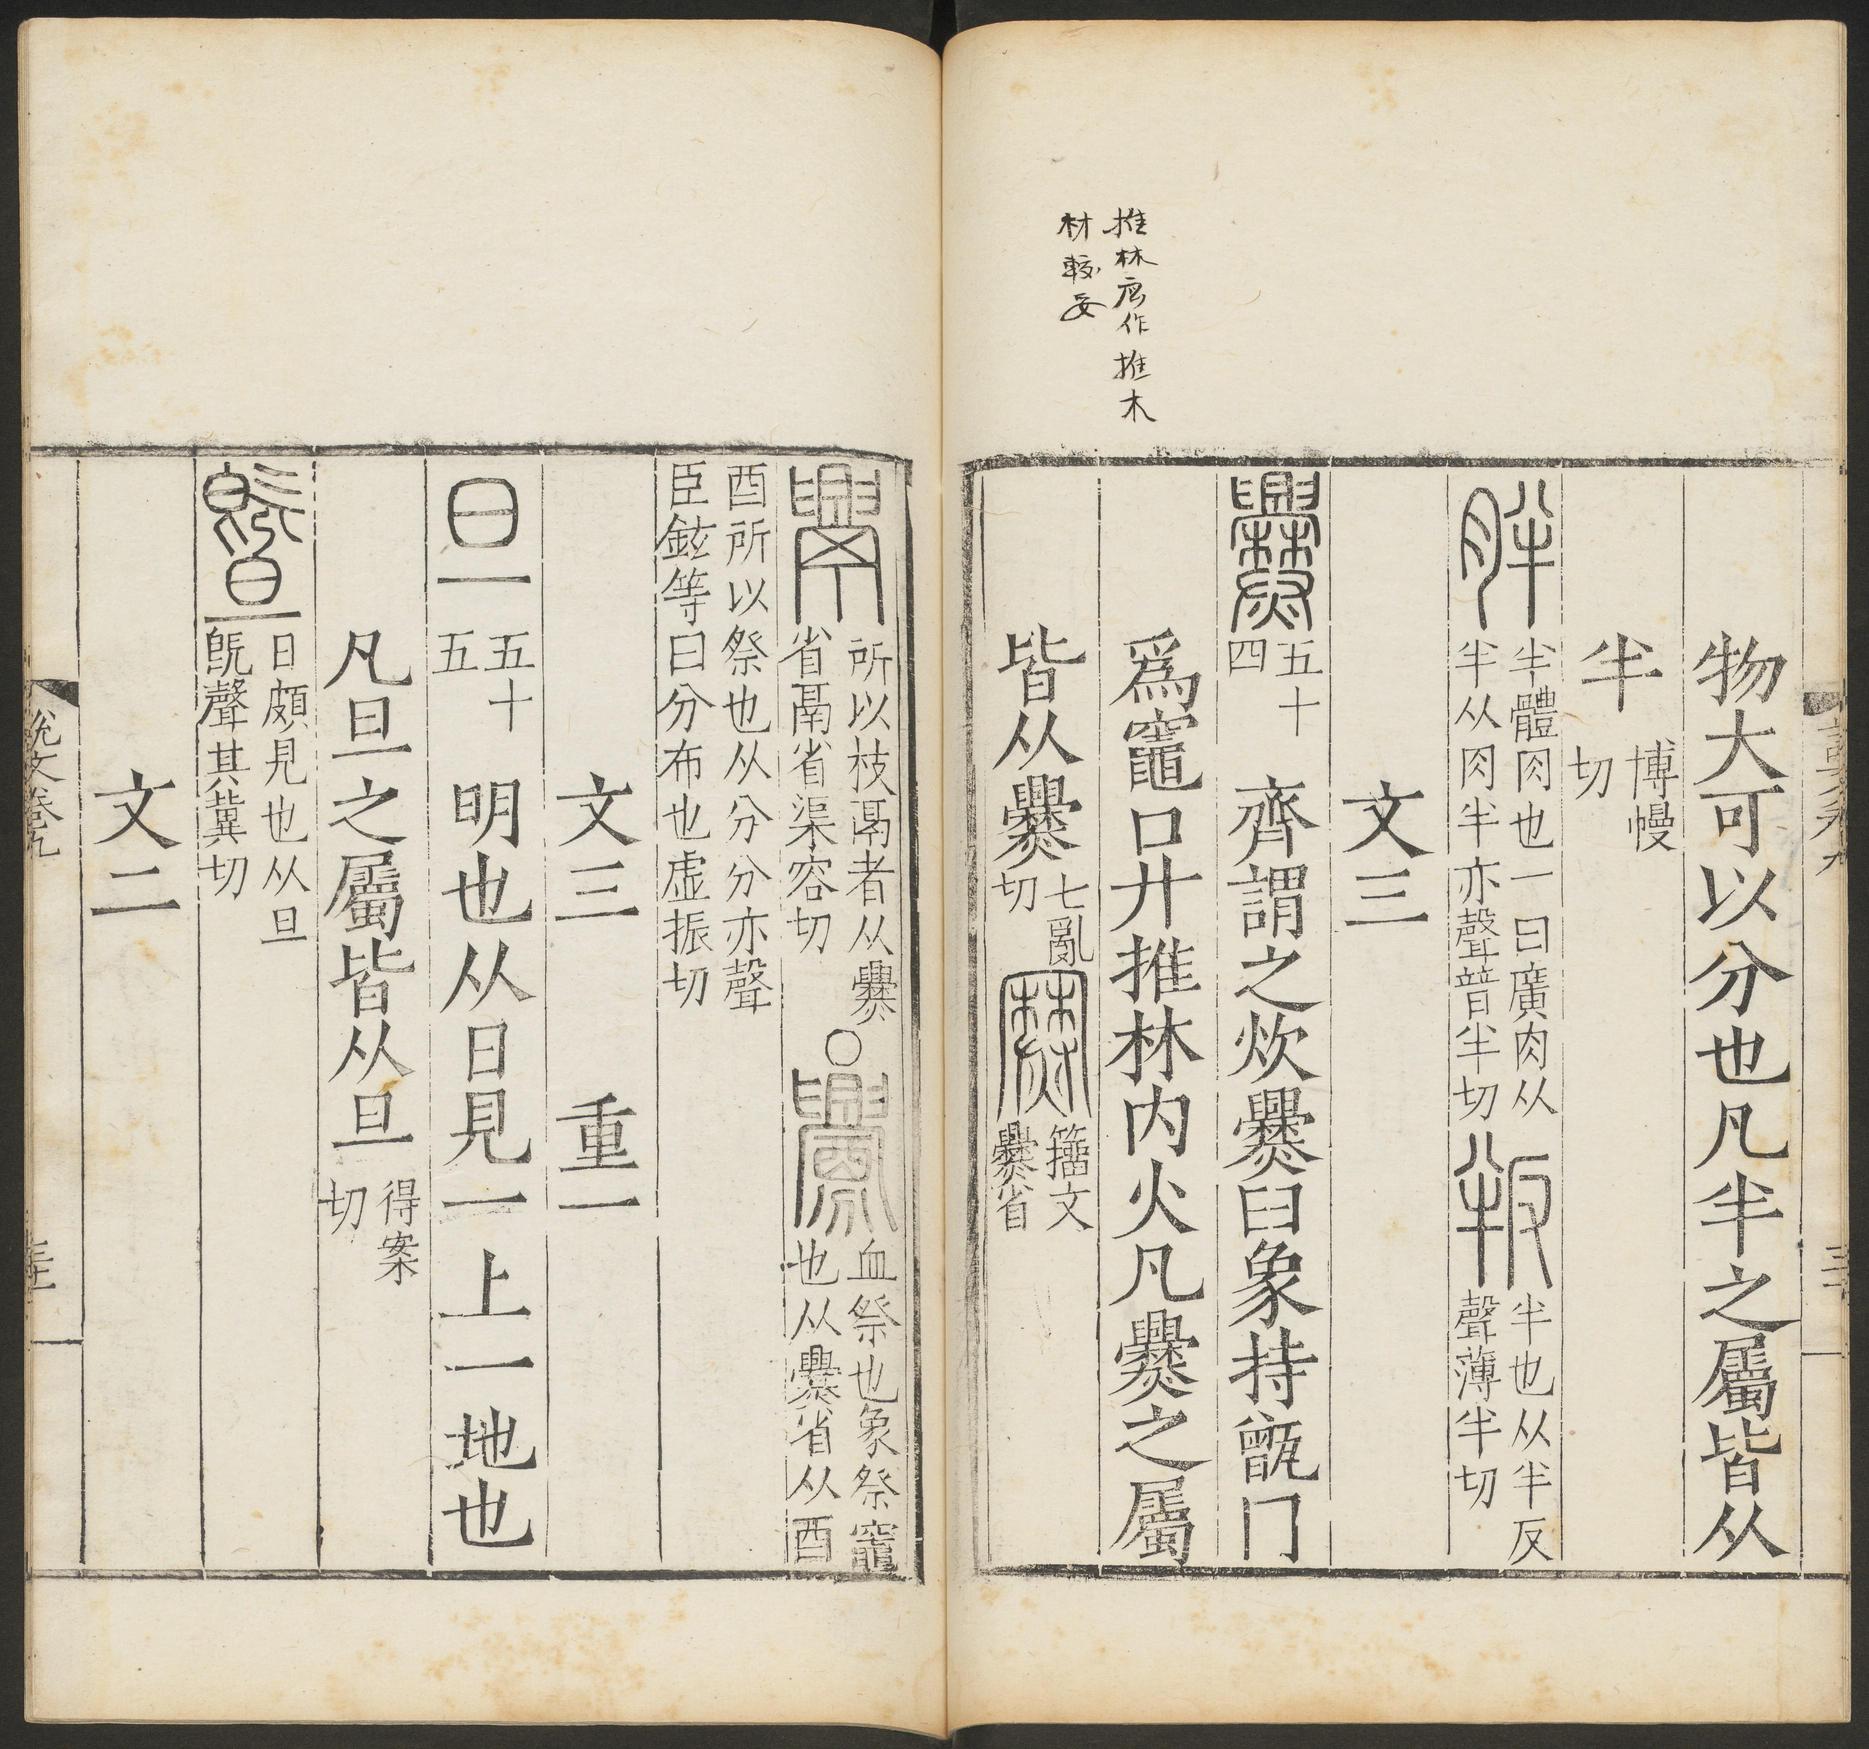 推林應作推木
材較妥
物大可以分也凡半之屬皆从
半 博幔切
胖 半體肉也一曰廣肉从半从肉半亦聲普半切 叛 半也从半反聲薄半切
文三
爨 五十四 齊謂之炊爨臼象持甑冂
爲竈口廾推林内火凡爨之屬
皆从爨 七亂切 𤑓 籒文爨省
所以枝鬲者从爨省鬲省渠容切 ○ 釁 血祭也象祭竈也从爨省从酉
酉所以祭也从分分亦聲臣鉉等曰分布也虛振切
文三 重一
旦 五十五 明也从日見一上一地也
凡旦之屬皆从旦 得案切
暨 日頗見也从旦旣聲其冀切
文二
說文卷九